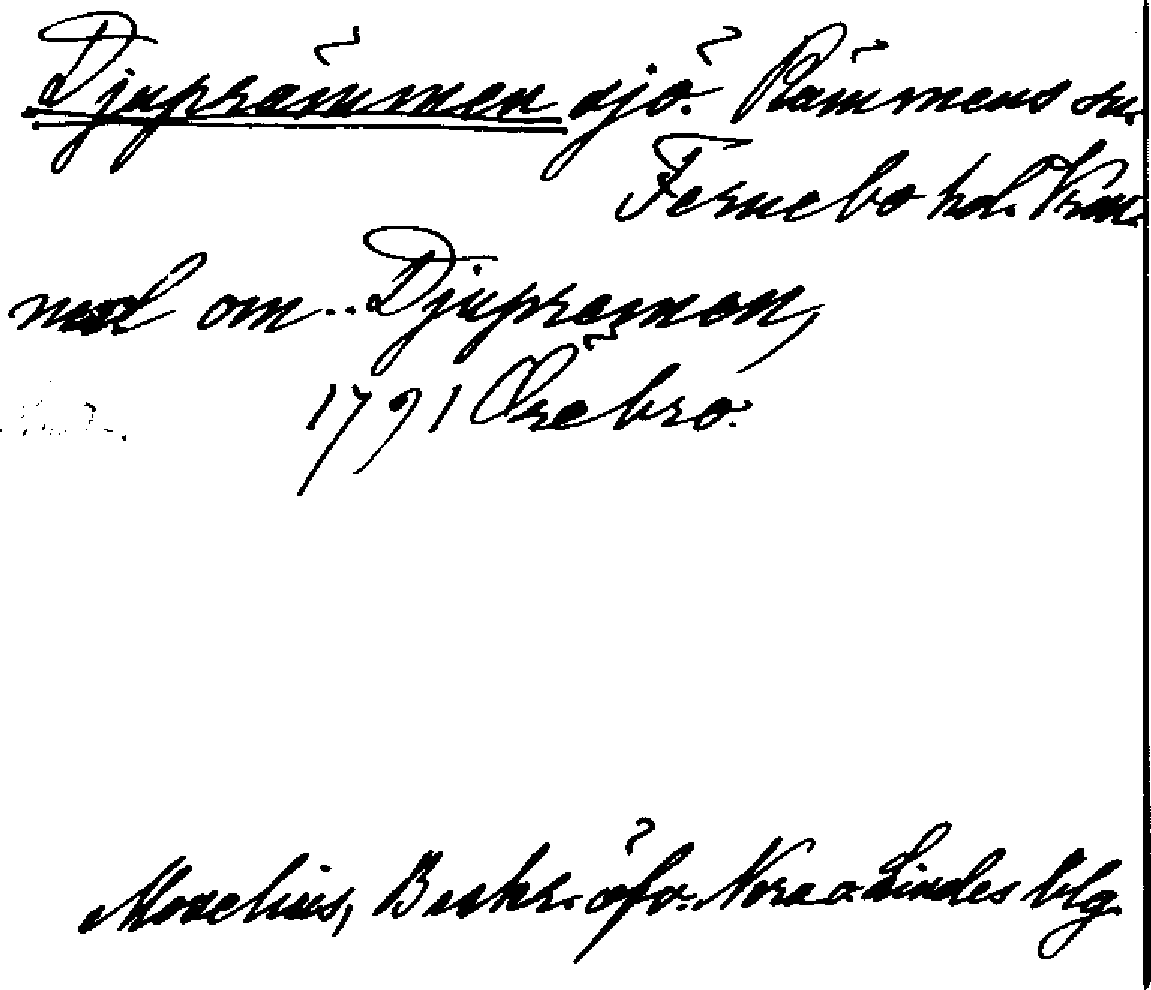 Djuprämmen sjö. Rämmens sn.
Fernebo hd. Vrm.
ned om.. Djupræmen,
1791 Örebro.
Morelius, Beskr. öfv. Nora o Lindes blg.